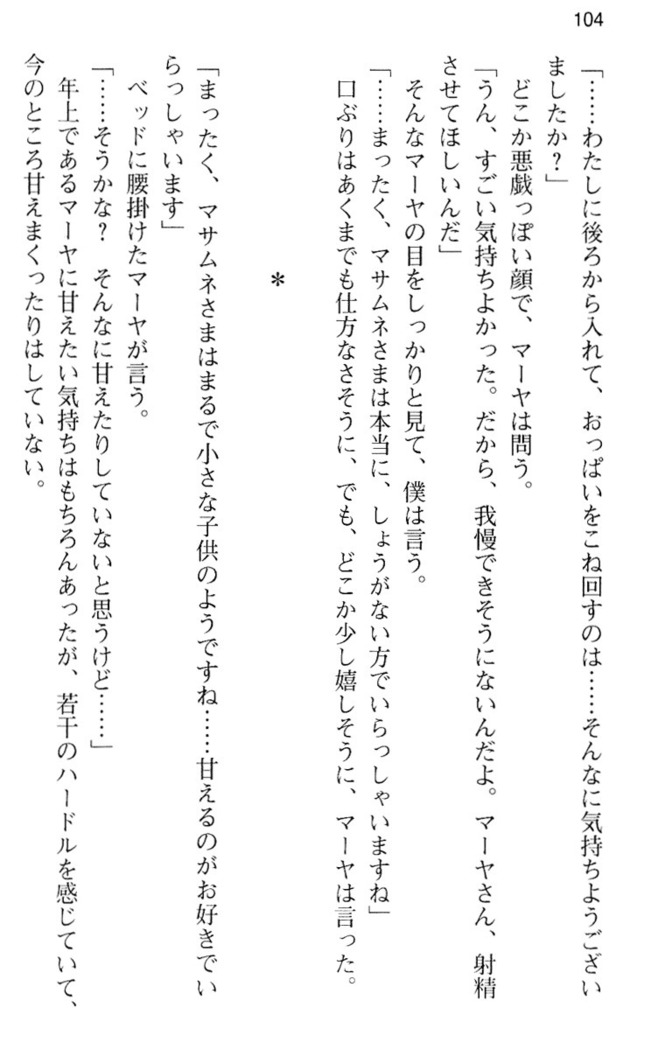 104
「……わたしに後ろから入れて、おっぱいをこね回すのは……そんなに気持ちようござい
ましたか？」
どこか悪戯っぽい顔で、マーヤは問う。
「うん、すごい気持ちよかった。だから、我慢できそうにないんだよ。マーヤさん、射精
させてほしいんだ」
そんなマーヤの目をしっかりと見て、僕は言う。
「……まったく、マサムネさまは本当に、しょうがない方でいらっしゃいますね」
口ぶりはあくまでも仕方なさそうに、でも、どこか少し嬉しそうに、マーヤは言った。
＊
「まったく、マサムネさまはまるで小さな子供のようですね……甘えるのがお好きでい
らっしゃいます」
ベッドに腰掛けたマーヤが言う。
「……そうかな？　そんなに甘えたりしていないと思うけど……」
年上であるマーヤに甘えたい気持ちはもちろんあったが、若干のハードルを感じていて、
今のところ甘えまくったりはしていない。